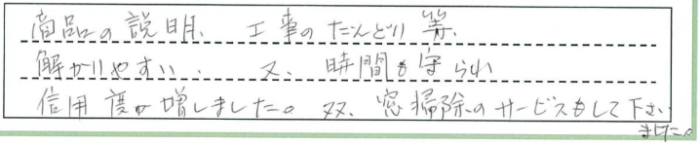 商品の説明、工事のだんどり等、
解かりやすい、又、時間も守られ
信用度が増しました。又、窓掃除のサービスもして下さい
ました。